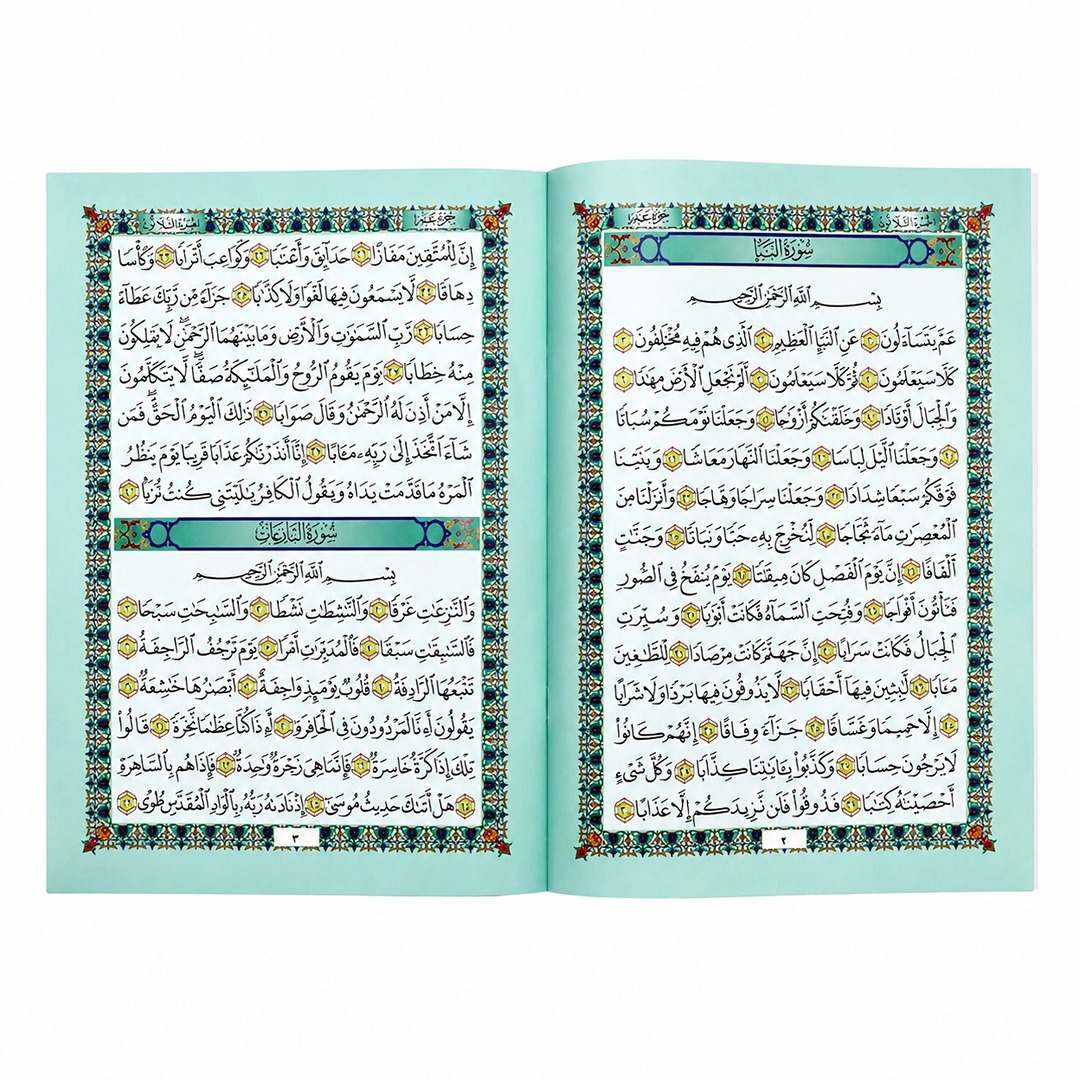 جزء عم
الجزء الثلاثون
سُورَةُ النَّبَإِ
بِسْمِ ٱللَّهِ ٱلرَّحْمَٰنِ ٱلرَّحِيمِ
عَمَّ يَتَسَآءَلُونَ عَنِ ٱلنَّبَإِ ٱلْعَظِيمِ ٱلَّذِى هُمْ فِيهِ مُخْتَلِفُونَ
كَلَّا سَيَعْلَمُونَ ثُمَّ كَلَّا سَيَعْلَمُونَ أَلَمْ نَجْعَلِ ٱلْأَرْضَ مِهَٰدًا
وَٱلْجِبَالَ أَوْتَادًا وَخَلَقْنَٰكُمْ أَزْوَٰجًا وَجَعَلْنَا نَوْمَكُمْ سُبَاتًا
وَجَعَلْنَا ٱلَّيْلَ لِبَاسًا وَجَعَلْنَا ٱلنَّهَارَ مَعَاشًا وَبَنَيْنَا
فَوْقَكُمْ سَبْعًا شِدَادًا وَجَعَلْنَا سِرَاجًا وَهَّاجًا وَأَنزَلْنَا مِنَ
ٱلْمُعْصِرَٰتِ مَآءً ثَجَّاجًا لِّنُخْرِجَ بِهِۦ حَبًّا وَنَبَاتًا وَجَنَّٰتٍ
أَلْفَافًا إِنَّ يَوْمَ ٱلْفَصْلِ كَانَ مِيقَٰتًا يَوْمَ يُنفَخُ فِى ٱلصُّورِ
فَتَأْتُونَ أَفْوَاجًا وَفُتِحَتِ ٱلسَّمَآءُ فَكَانَتْ أَبْوَٰبًا وَسُيِّرَتِ
ٱلْجِبَالُ فَكَانَتْ سَرَابًا إِنَّ جَهَنَّمَ كَانَتْ مِرْصَادًا لِّلطَّٰغِينَ
مَـَٔابًا لَّٰبِثِينَ فِيهَآ أَحْقَابًا لَّا يَذُوقُونَ فِيهَا بَرْدًا وَلَا شَرَابًا
إِلَّا حَمِيمًا وَغَسَّاقًا جَزَآءً وِفَاقًا إِنَّهُمْ كَانُوا۟
لَا يَرْجُونَ حِسَابًا وَكَذَّبُوا۟ بِـَٔايَٰتِنَا كِذَّابًا وَكُلَّ شَىْءٍ
أَحْصَيْنَٰهُ كِتَٰبًا فَذُوقُوا۟ فَلَن نَّزِيدَكُمْ إِلَّا عَذَابًا
٢
جزء عم
الجزء الثلاثون
إِنَّ لِلْمُتَّقِينَ مَفَازًا حَدَآئِقَ وَأَعْنَٰبًا وَكَوَاعِبَ أَتْرَابًا وَكَأْسًا
دِهَاقًا لَّا يَسْمَعُونَ فِيهَا لَغْوًا وَلَا كِذَّٰبًا جَزَآءً مِّن رَّبِّكَ عَطَآءً
حِسَابًا رَّبِّ ٱلسَّمَٰوَٰتِ وَٱلْأَرْضِ وَمَا بَيْنَهُمَا ٱلرَّحْمَٰنِ لَا يَمْلِكُونَ
مِنْهُ خِطَابًا يَوْمَ يَقُومُ ٱلرُّوحُ وَٱلْمَلَٰٓئِكَةُ صَفًّا لَّا يَتَكَلَّمُونَ
إِلَّا مَنْ أَذِنَ لَهُ ٱلرَّحْمَٰنُ وَقَالَ صَوَابًا ذَٰلِكَ ٱلْيَوْمُ ٱلْحَقُّ فَمَن
شَآءَ ٱتَّخَذَ إِلَىٰ رَبِّهِۦ مَـَٔابًا إِنَّآ أَنذَرْنَٰكُمْ عَذَابًا قَرِيبًا يَوْمَ يَنظُرُ
ٱلْمَرْءُ مَا قَدَّمَتْ يَدَاهُ وَيَقُولُ ٱلْكَافِرُ يَٰلَيْتَنِى كُنتُ تُرَٰبًۢا
سُورَةُ النَّازِعَاتِ
بِسْمِ ٱللَّهِ ٱلرَّحْمَٰنِ ٱلرَّحِيمِ
وَٱلنَّٰزِعَٰتِ غَرْقًا وَٱلنَّٰشِطَٰتِ نَشْطًا وَٱلسَّٰبِحَٰتِ سَبْحًا
فَٱلسَّٰبِقَٰتِ سَبْقًا فَٱلْمُدَبِّرَٰتِ أَمْرًا يَوْمَ تَرْجُفُ ٱلرَّاجِفَةُ
تَتْبَعُهَا ٱلرَّادِفَةُ قُلُوبٌ يَوْمَئِذٍ وَاجِفَةٌ أَبْصَٰرُهَا خَٰشِعَةٌ
يَقُولُونَ أَءِنَّا لَمَرْدُودُونَ فِى ٱلْحَافِرَةِ أَءِذَا كُنَّا عِظَٰمًا نَّخِرَةً قَالُوا۟
تِلْكَ إِذًا كَرَّةٌ خَاسِرَةٌ فَإِنَّمَا هِىَ زَجْرَةٌ وَٰحِدَةٌ فَإِذَا هُم بِٱلسَّاهِرَةِ
هَلْ أَتَىٰكَ حَدِيثُ مُوسَىٰٓ إِذْ نَادَىٰهُ رَبُّهُۥ بِٱلْوَادِ ٱلْمُقَدَّسِ طُوًى
٣